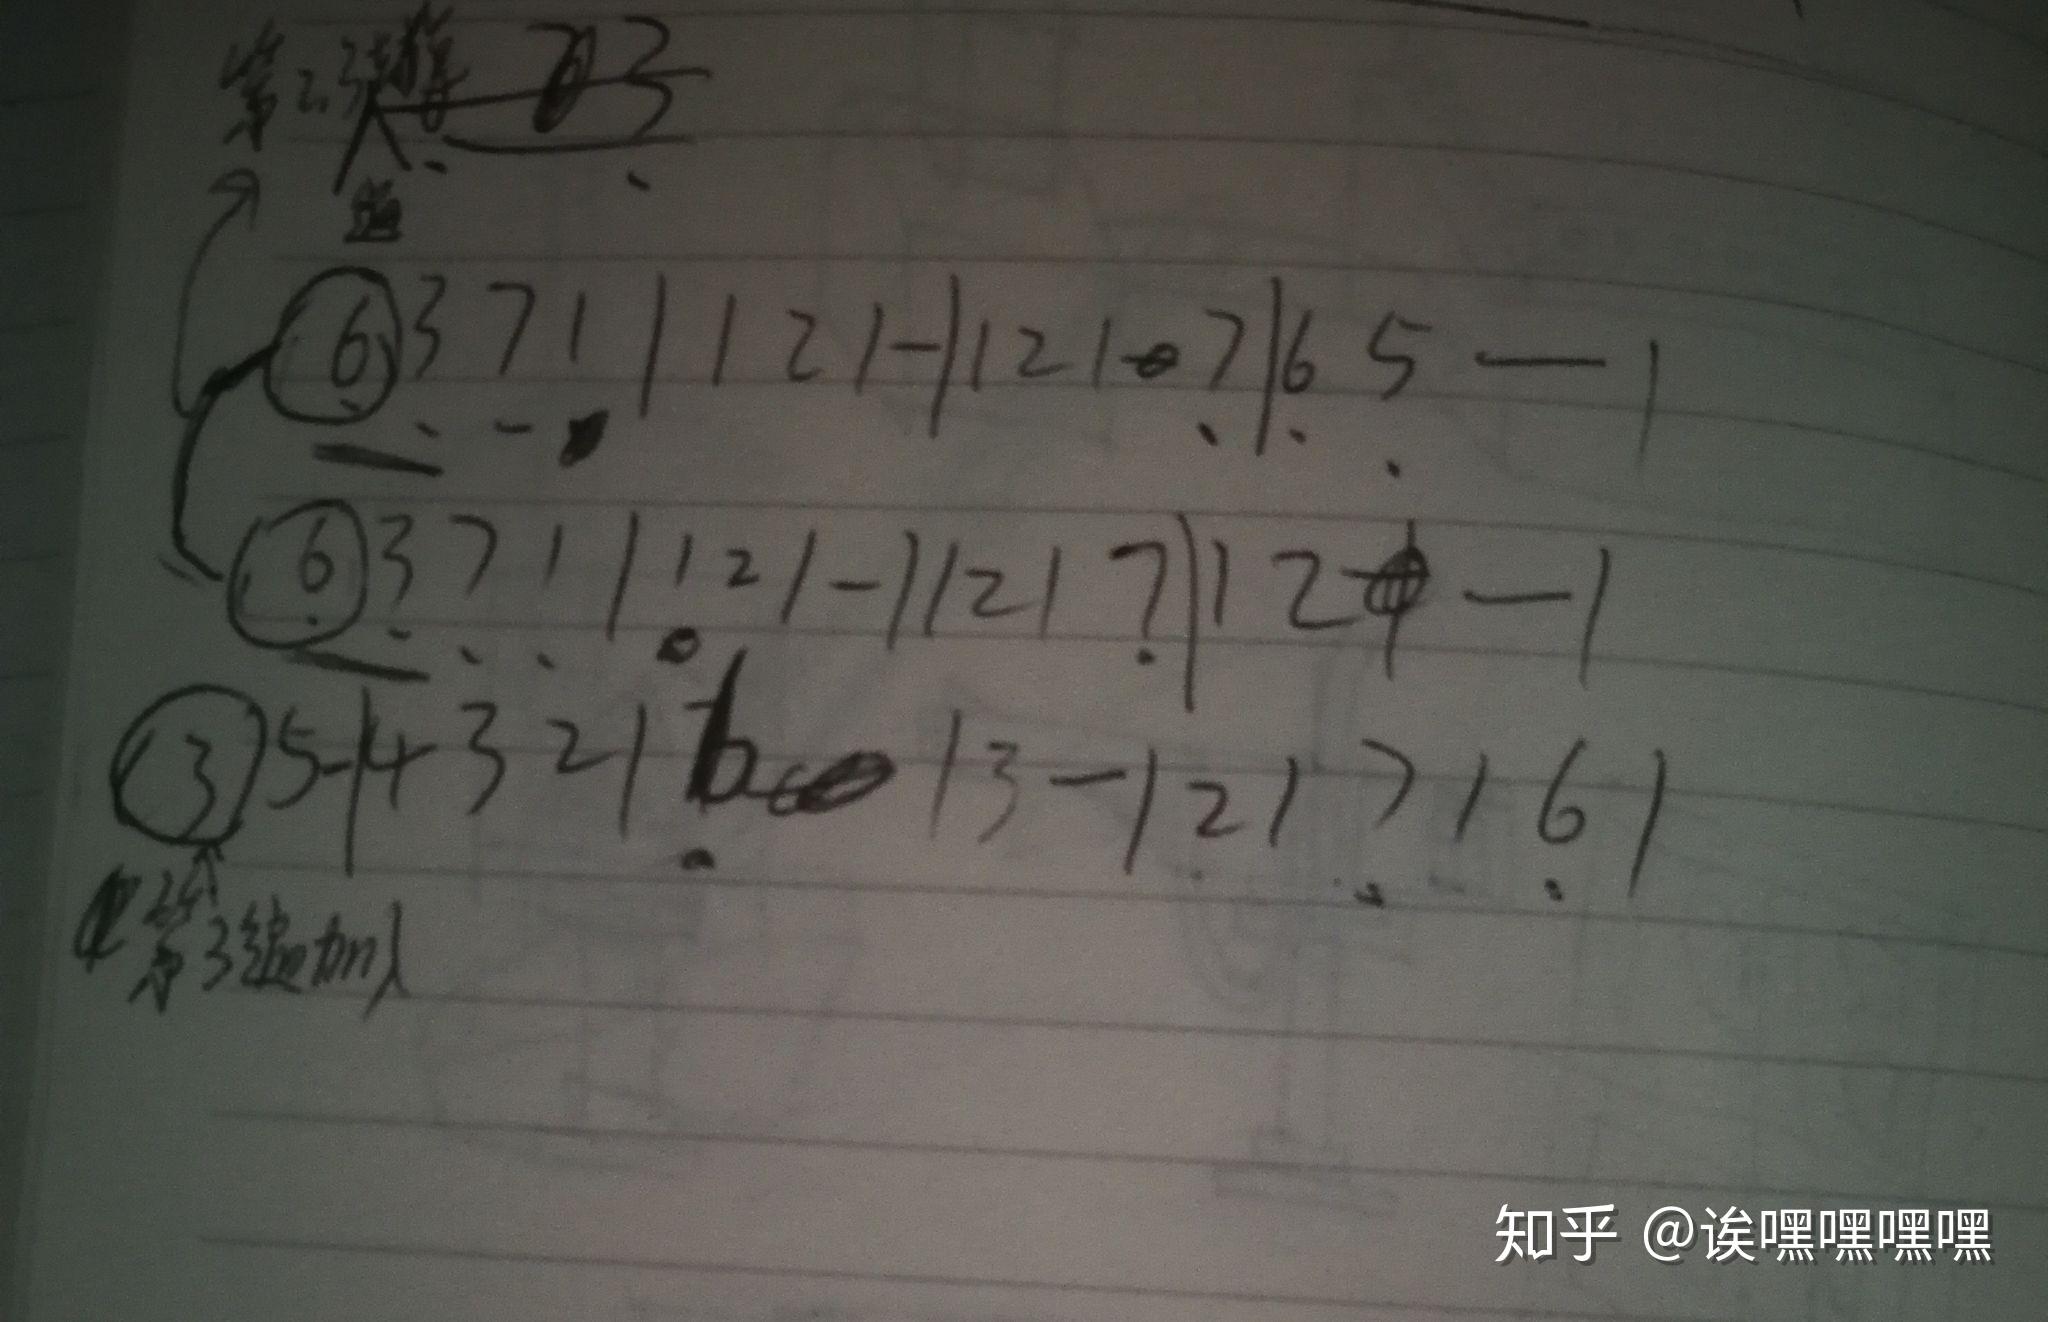 第2,3遍 3
⑥ 3 7 1 | 1 2 1 — | 1 2 1 7 | 6 5 — |
⑥ 3 7 1 | 1 2 1 — | 1 2 1 7 | 1 2 — |
③ 5 - | 4 3 2 1 6 | 3 — | 2 1 7 1 6 |
第3遍加入
知乎 @诶嘿嘿嘿嘿